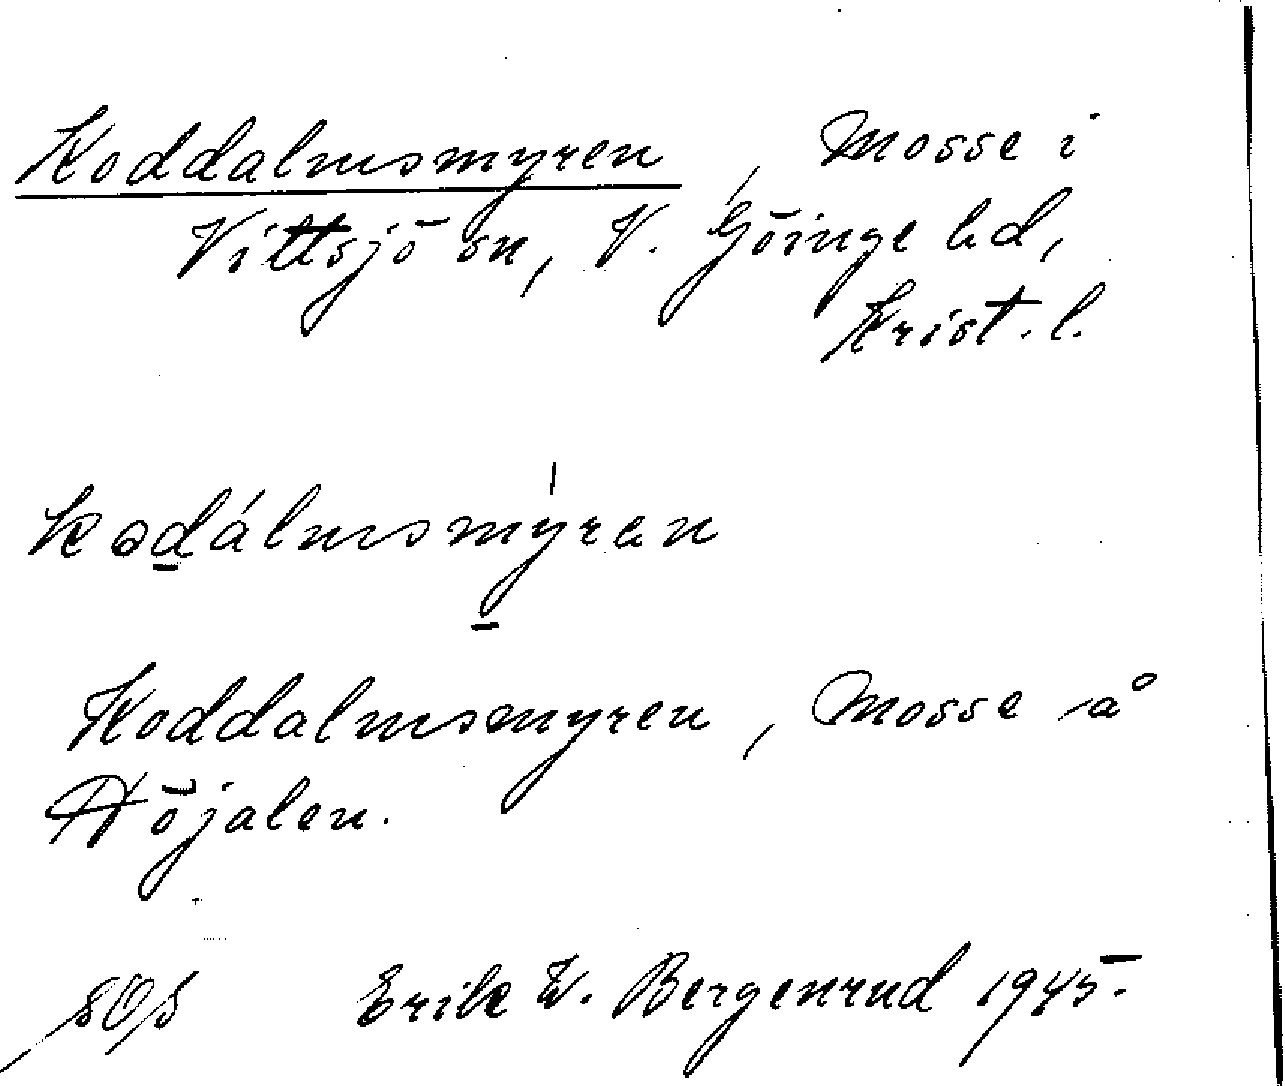 Koddalmsmyren, Mosse i
Vittsjö sn, V. Göinge hd,
Krist. l.
kodálmsmýren
Koddalmsmyren, Mosse å
Höjalen.
Erik W. Bergenrud 1945.